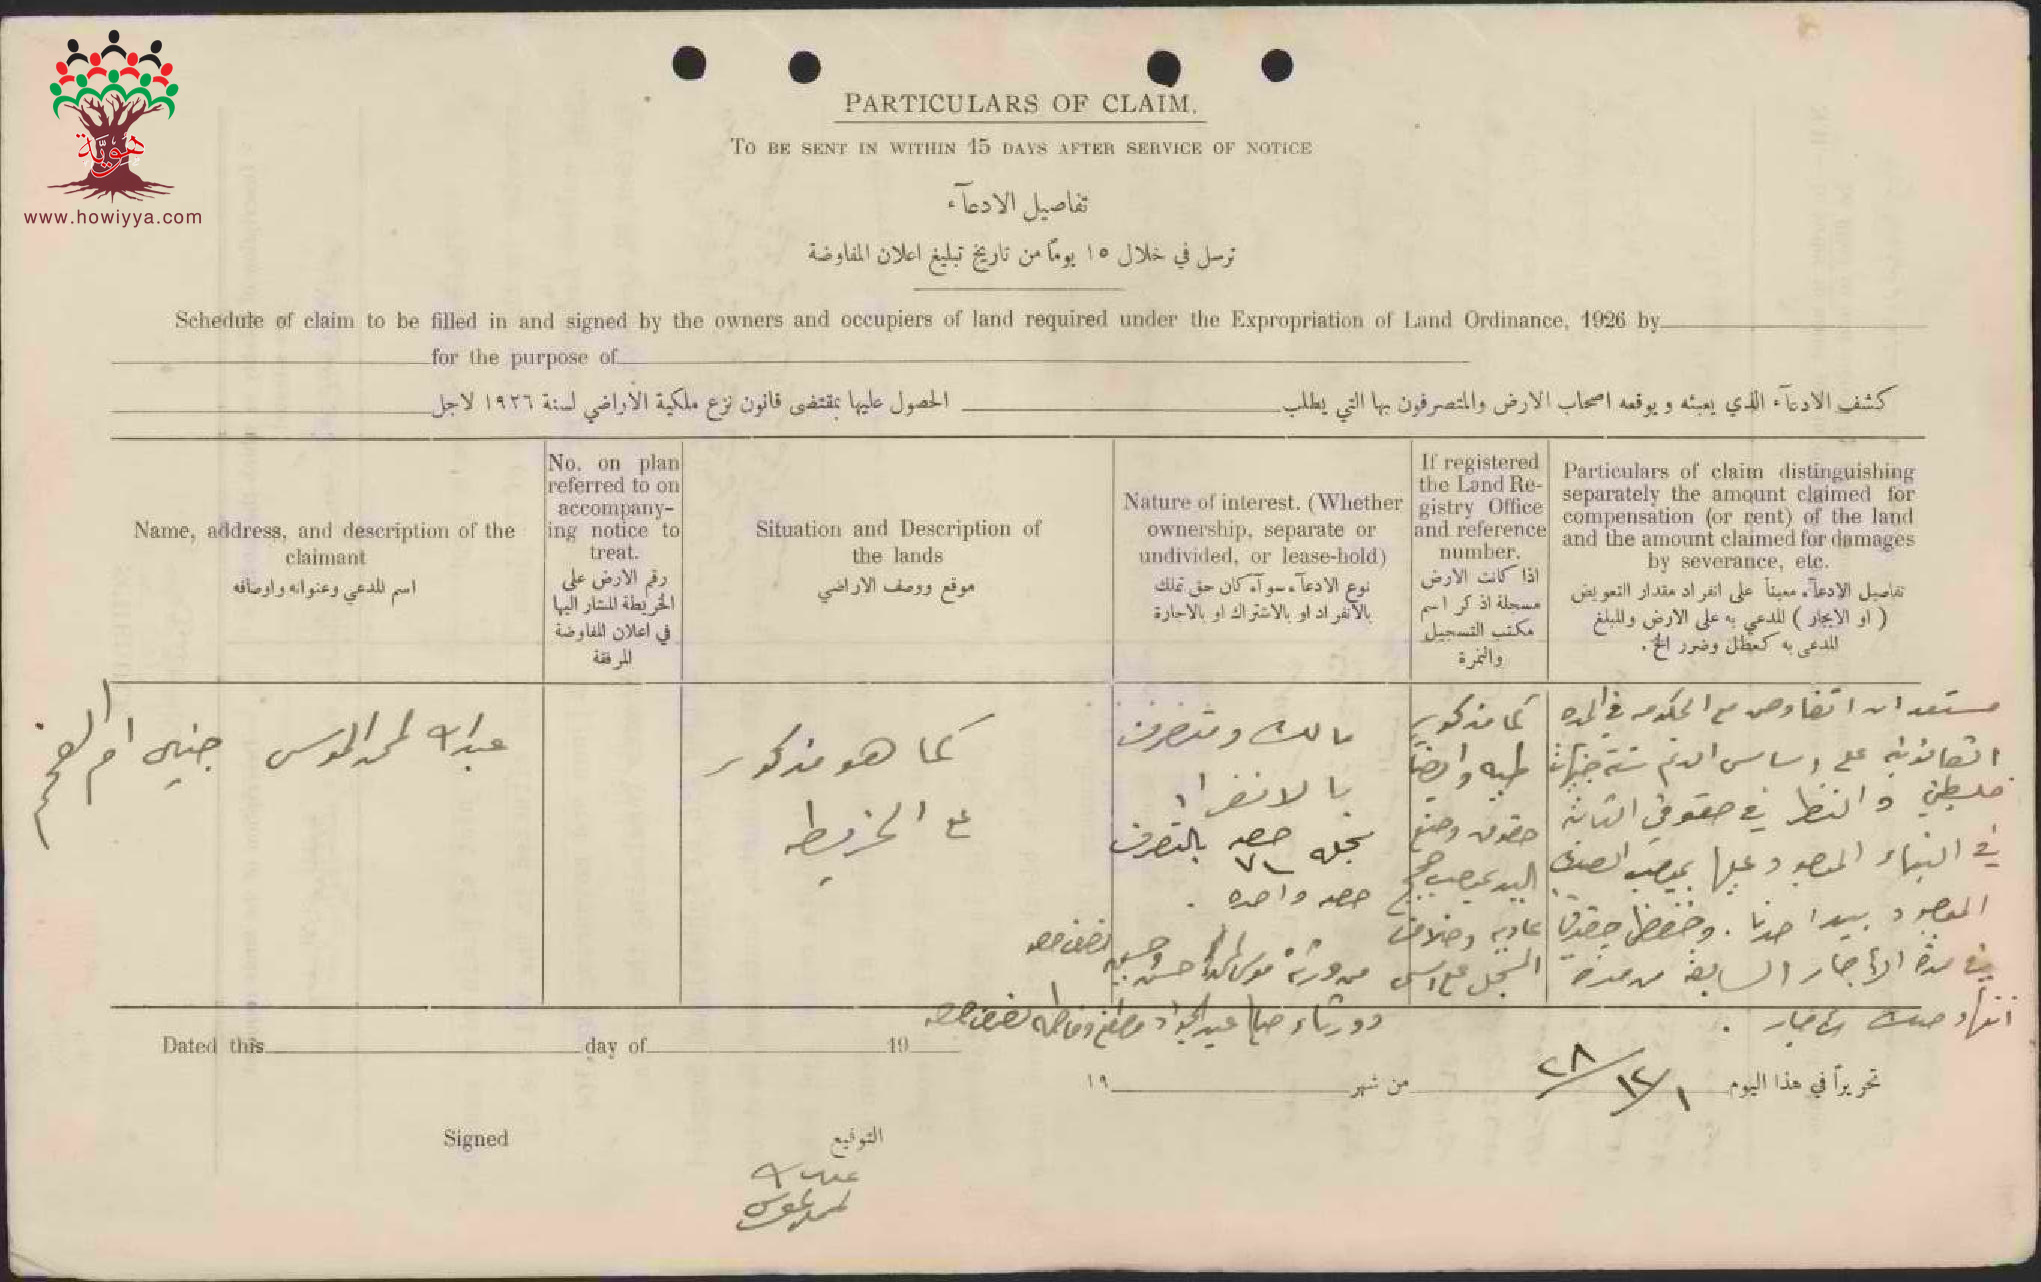 هويّة
www.howiyya.com
PARTICULARS OF CLAIM.
TO BE SENT IN WITHIN 15 DAYS AFTER SERVICE OF NOTICE
تفاصيل الادعآء
ترسل في خلال ١٥ يوماً من تاريخ تبليغ اعلان المفاوضة
Schedule of claim to be filled in and signed by the owners and occupiers of land required under the Expropriation of Land Ordinance, 1926 by
for the purpose of
كشف الادعآء الذي يعبئه و يوقعه اصحاب الارض والمتصرفون بها التي يطلب
الحصول عليها بمقتضى قانون نزع ملكية الأراضي لسنة ١٩٢٦ لاجل
Name, address, and description of the
claimant
اسم المدعي وعنوانه واوصافه
No. on plan
referred to on
accompany-
ing notice to
treat.
رقم الارض على
الخريطة المشار اليها
في اعلان المفاوضة
المرفقة
Situation and Description of
the lands
موقع ووصف الاراضي
Nature of interest. (Whether
ownership, separate or
undivided, or lease-hold)
نوع الادعآء سوآء كان حق تملك
بالانفراد او بالاشتراك او بالاجارة
If registered
the Land Re-
gistry Office
and reference
number.
اذا كانت الارض
مسجلة اذكر اسم
مكتب التسجيل
والنمرة
Particulars of claim distinguishing
separately the amount claimed for
compensation (or rent) of the land
and the amount claimed for damages
by severance, etc.
تفاصيل الادعآء معيناً على انفراد مقدار التعويض
( او الايجار ) المدعي به على الارض والمبلغ
المدعى به كعطل وضرر الخ .
عبدالله المحمد الموسى جنين ام الفحم
كما هو مذكور
على الخريطه
مالك ومتصرف
بالانفراد
حصه بالتصرف
حصه واحده .
من ورثة موسى حسن وحسين نصف حصه
نصف حصه
كما مذكور
طيه وايضاً
حقوق وضع
اليد بموجب
مستعد ان اتفاوض مع الحكومه في المده
القانونيه على اساس الدنم ستة جنيهات
فلسطيني والنظر في حقوقي الثابته
في البناء الموجود عليها بموجب الصك
الموجود بيد احدنا . وحفظ حقوقي
في مدة الأيجار السابقة من مدة
Dated this day of 19
تحريراً في هذا اليوم ١/١٢/٢٨ من شهر ١٩
Signed
التوقيع
عبدالله
المحمد الموسى